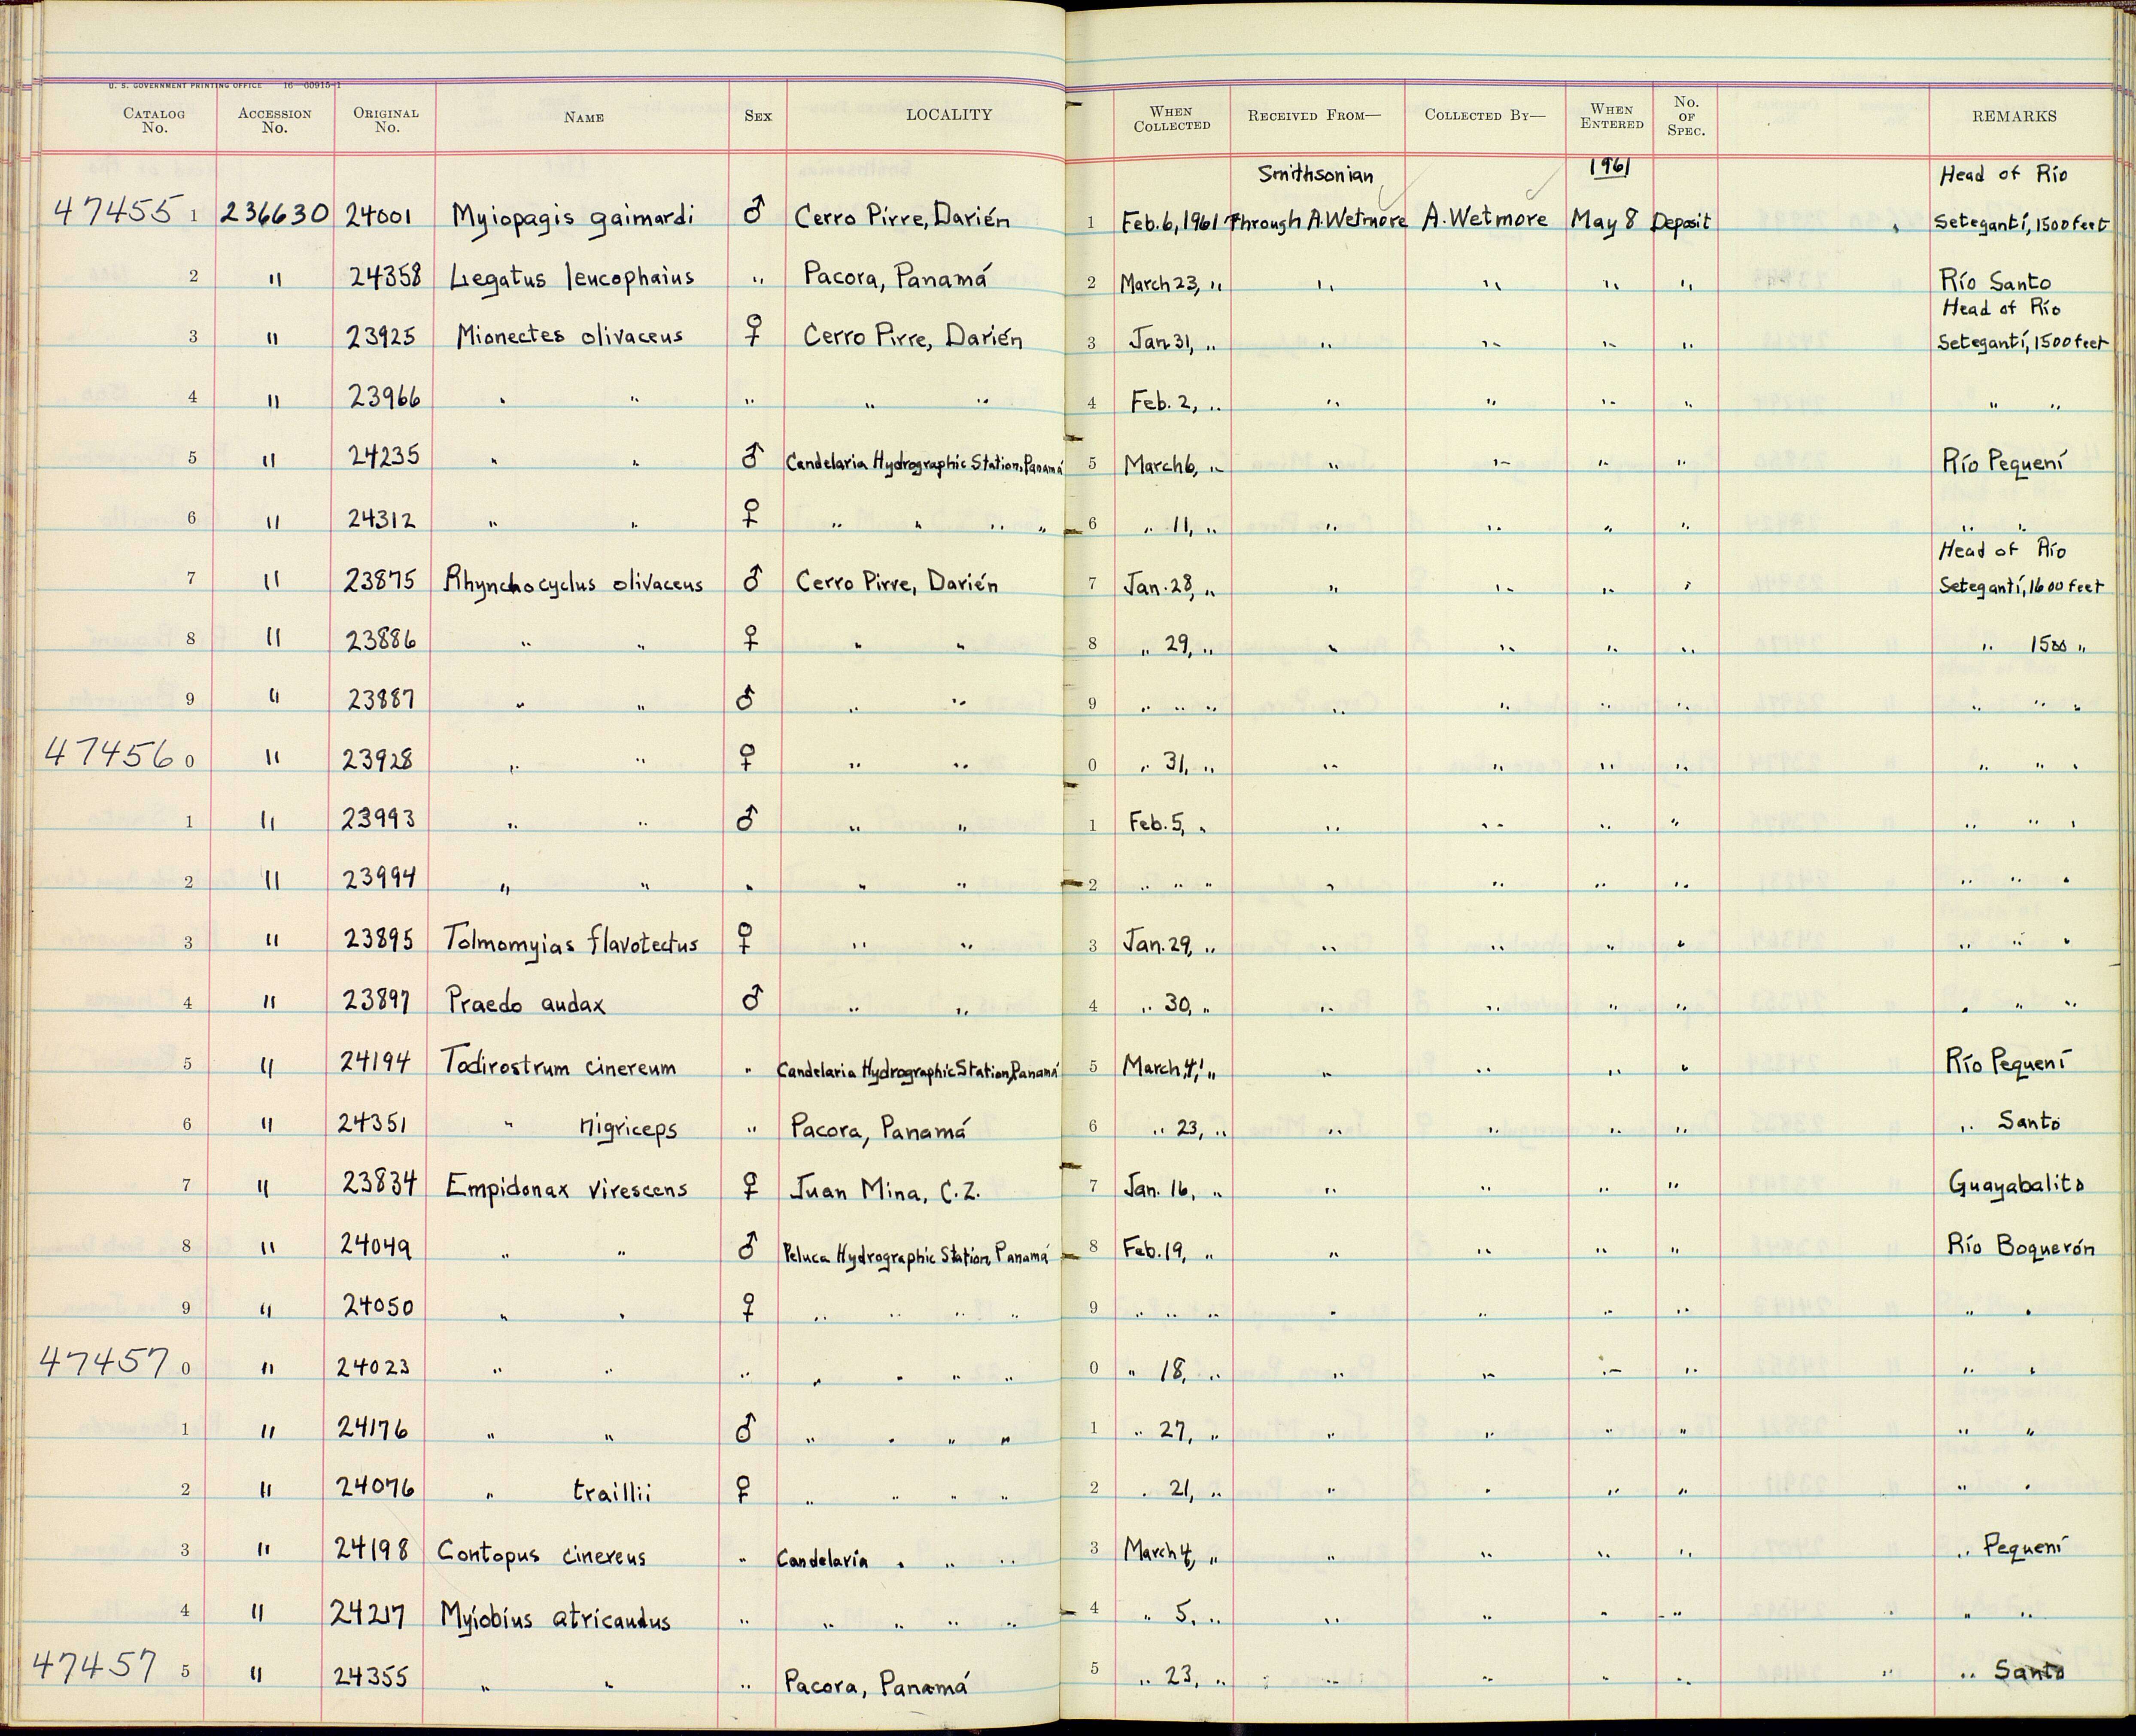 U. S. GOVERNMENT PRINTING OFFICE 16—60915-1
CATALOG No. ACCESSION No. ORIGINAL No. NAME SEX LOCALITY WHEN COLLECTED RECEIVED FROM— COLLECTED BY— WHEN ENTERED No. OF SPEC. REMARKS
Smithsonian 1961 Head of Río
47455 1 236630 24001 Myiopagis gaimardi ♂ Cerro Pirre, Darién 1 Feb. 6, 1961 Through A. Wetmore A. Wetmore May 8 Deposit Setegantí, 1500 feet
2 " 24358 Legatus leucophaius " Pacora, Panamá 2 March 23, " " " " " Río Santo
Head of Río
3 " 23925 Mionectes olivaceus ♀ Cerro Pirre, Darién 3 Jan. 31, " " " " " Setegantí, 1500 feet
4 " 23966 " " " " " 4 Feb. 2, " " " " " " "
5 " 24235 " " ♂ Candelaria Hydrographic Station, Panamá 5 March 6, " " " " " Río Pequení
6 " 24312 " " ♀ " " " " 6 " 11, " " " " " " "
Head of Río
7 " 23875 Rhynchocyclus olivaceus ♂ Cerro Pirre, Darién 7 Jan. 28, " " " " " Setegantí, 1600 feet
8 " 23886 " " ♀ " " 8 " 29, " " " " " " 1500 "
9 " 23887 " " ♂ " " 9 " " " " " " " " " "
47456 0 " 23928 " " ♀ " " 0 " 31, " " " " " " " "
1 " 23993 " " ♂ " " 1 Feb. 5, " " " " " " " "
2 " 23994 " " " " " 2 " " " " " " " " " "
3 " 23895 Tolmomyias flavotectus ♀ " " 3 Jan. 29, " " " " " " " "
4 " 23897 Praedo audax ♂ " " 4 " 30, " " " " " " " "
5 " 24194 Todirostrum cinereum " Candelaria Hydrographic Station, Panamá 5 March 4, " " " " " Río Pequení
6 " 24351 " nigriceps " Pacora, Panamá 6 " 23, " " " " " " Santo
7 " 23834 Empidonax virescens ♀ Juan Mina, C.Z. 7 Jan. 16, " " " " " Guayabalito
8 " 24049 " " ♂ Peluca Hydrographic Station, Panamá 8 Feb. 19, " " " " " Río Boquerón
9 " 24050 " " ♀ " " " " 9 " " " " " " " " "
47457 0 " 24023 " " " " " " " 0 " 18, " " " " " " "
1 " 24176 " " ♂ " " " " 1 " 27, " " " " " " "
2 " 24076 " traillii ♀ " " " " 2 " 21, " " " " " " "
3 " 24198 Contopus cinereus " Candelaria " " " 3 March 4, " " " " " " Pequení
4 " 24217 Myiobius atricaudus " " " " " 4 " 5, " " " " " " "
47457 5 " 24355 " " " Pacora, Panamá 5 " 23, " " " " " " " Santo